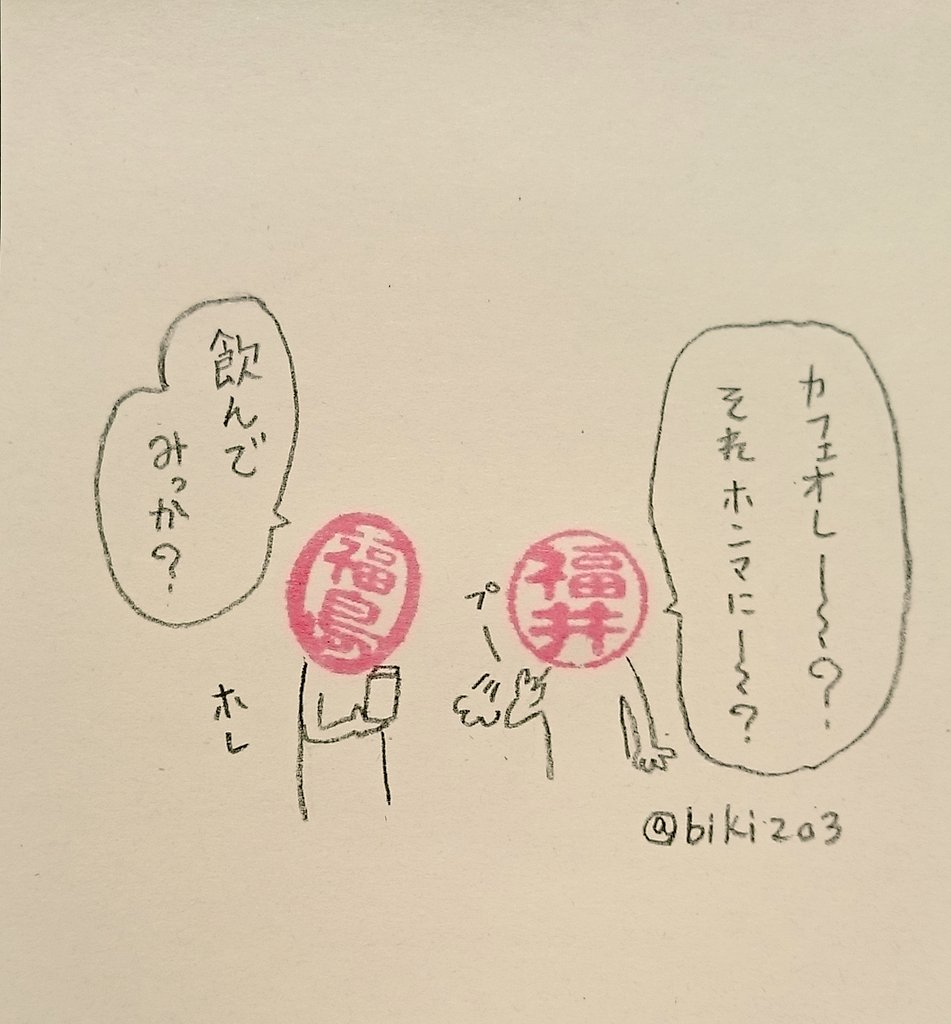 カフェオレー〜？
それホンマにー〜？
福井
プー
飲んで
みっか？
福島
ホレ
@bikizo3